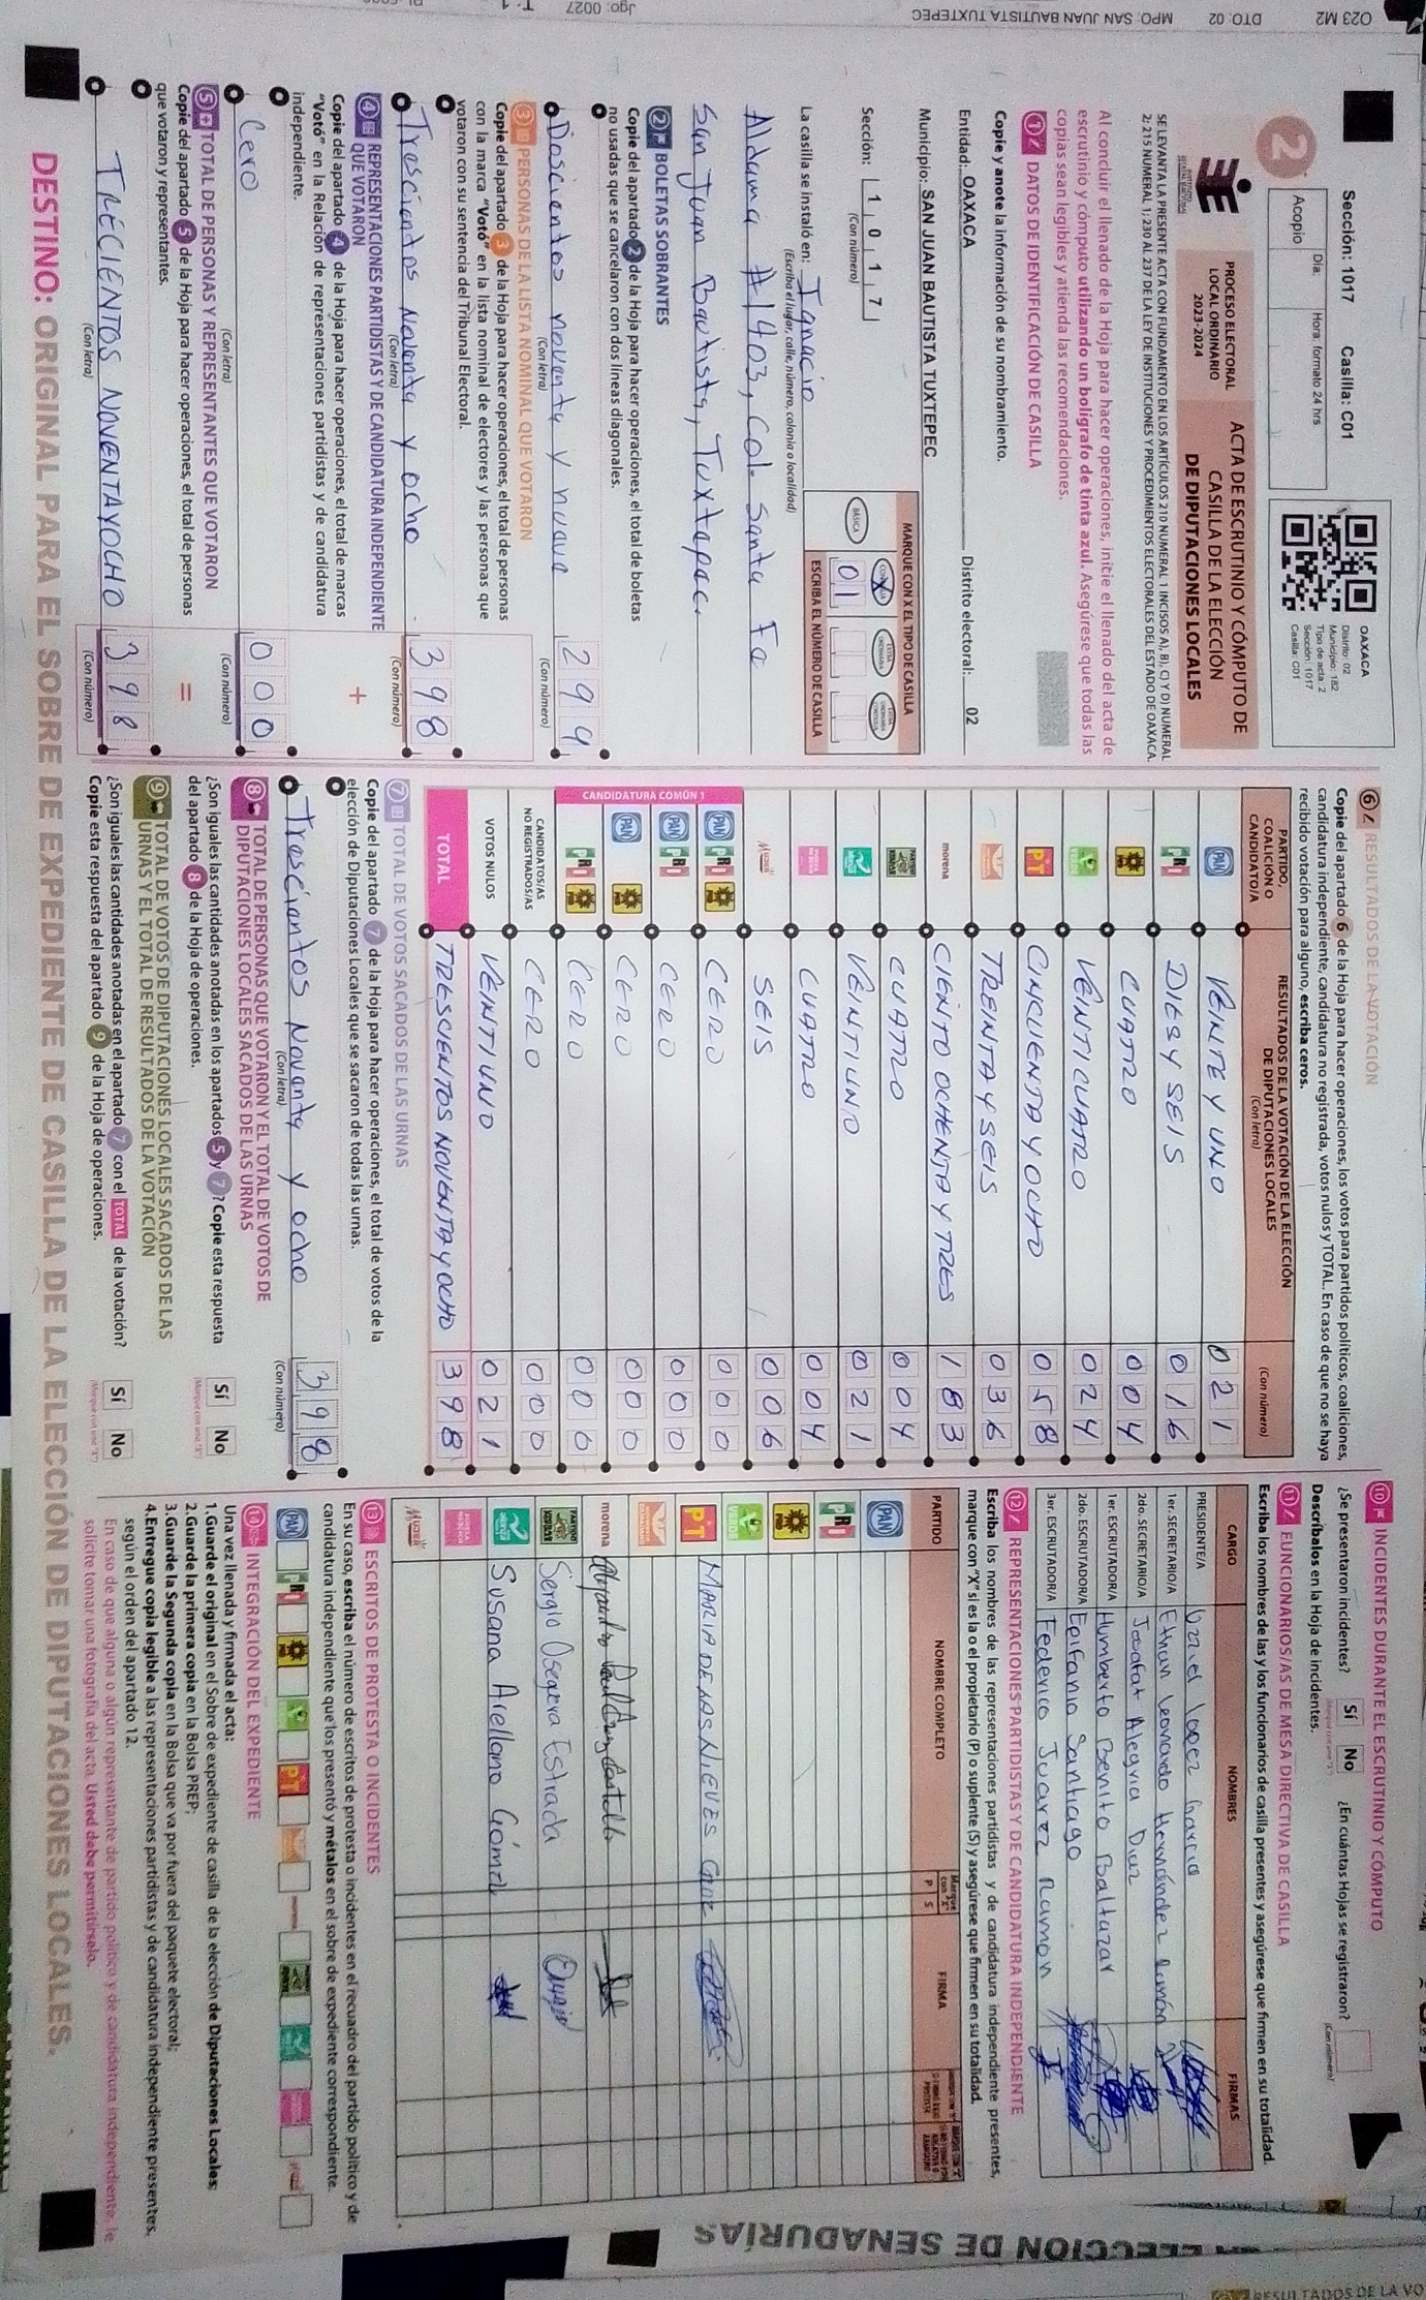 Sección: 1017 Casilla: C01
Día: Hora: formato 24 hrs
Acopio
2
OAXACA
Distrito: 02
Municipio: 182
Tipo de acta: 2
Sección: 1017
Casilla: C01
PROCESO ELECTORAL
LOCAL ORDINARIO
2023-2024
ACTA DE ESCRUTINIO Y CÓMPUTO DE
CASILLA DE LA ELECCIÓN
DE DIPUTACIONES LOCALES
SE LEVANTA LA PRESENTE ACTA CON FUNDAMENTO EN LOS ARTÍCULOS 210 NUMERAL 1 INCISOS A), B), C) Y D) NUMERAL
2; 215 NUMERAL 1; 230 AL 237 DE LA LEY DE INSTITUCIONES Y PROCEDIMIENTOS ELECTORALES DEL ESTADO DE OAXACA.
Al concluir el llenado de la Hoja para hacer operaciones, inicie el llenado del acta de
escrutinio y cómputo utilizando un bolígrafo de tinta azul. Asegúrese que todas las
copias sean legibles y atienda las recomendaciones.
1 DATOS DE IDENTIFICACIÓN DE CASILLA
Copie y anote la información de su nombramiento.
Entidad: OAXACA Distrito electoral: 02
Municipio: SAN JUAN BAUTISTA TUXTEPEC
Sección: 1 0 1 7
(Con número)
MARQUE CON X EL TIPO DE CASILLA
BÁSICA X
01
ESCRIBA EL NÚMERO DE CASILLA
La casilla se instaló en: Ignacio
(Escriba el lugar, calle, número, colonia o localidad)
Aldama #1403, Col. Santa Fe
San Juan Bautista, Tuxtepec.
2 BOLETAS SOBRANTES
Copie del apartado 2 de la Hoja para hacer operaciones, el total de boletas
no usadas que se cancelaron con dos líneas diagonales.
Doscientos noventa y nueve 299
(Con letra) (Con número)
3 PERSONAS DE LA LISTA NOMINAL QUE VOTARON
Copie del apartado 3 de la Hoja para hacer operaciones, el total de personas
con la marca "Votó" en la lista nominal de electores y las personas que
votaron con su sentencia del Tribunal Electoral.
Trescientos Noventa y ocho 398
(Con letra) (Con número)
4 REPRESENTACIONES PARTIDISTAS Y DE CANDIDATURA INDEPENDIENTE
QUE VOTARON
+
Copie del apartado 4 de la Hoja para hacer operaciones, el total de marcas
"Votó" en la Relación de representaciones partidistas y de candidatura
independiente.
Cero 000
(Con letra) (Con número)
5 TOTAL DE PERSONAS Y REPRESENTANTES QUE VOTARON
=
Copie del apartado 5 de la Hoja para hacer operaciones, el total de personas
que votaron y representantes.
TRECIENTOS NOVENTAYOCHO 398
(Con letra) (Con número)
6 RESULTADOS DE LA VOTACIÓN
Copie del apartado 6 de la Hoja para hacer operaciones, los votos para partidos políticos, coaliciones,
candidatura independiente, candidatura no registrada, votos nulos y TOTAL. En caso de que no se haya
recibido votación para alguno, escriba ceros.
PARTIDO,
COALICIÓN O
CANDIDATO/A
RESULTADOS DE LA VOTACIÓN DE LA ELECCIÓN
DE DIPUTACIONES LOCALES
(Con letra) (Con número)
PAN VEINTE Y UNO 021
PRI DIES Y SEIS 016
CUATRO 004
VEINTICUATRO 024
PT CINCUENTA Y OCHO 058
TRENTA Y SEIS 036
morena CIENTO OCHENTA Y TRES 183
CUATRO 004
VEINTIUNO 021
CUATRO 004
SEIS 006
CANDIDATURA COMÚN 1
PAN PRI CERO 000
PAN PRI CERO 000
PAN CERO 000
PRI CERO 000
CANDIDATOS/AS
NO REGISTRADOS/AS CERO 000
VOTOS NULOS VEINTIUNO 021
TOTAL TRESCIENTOS NOVENTA Y OCHO 398
7 TOTAL DE VOTOS SACADOS DE LAS URNAS
Copie del apartado 7 de la Hoja para hacer operaciones, el total de votos de la
elección de Diputaciones Locales que se sacaron de todas las urnas.
Trescientos Noventa y ocho 398
(Con letra) (Con número)
8 TOTAL DE PERSONAS QUE VOTARON Y EL TOTAL DE VOTOS DE
DIPUTACIONES LOCALES SACADOS DE LAS URNAS
¿Son iguales las cantidades anotadas en los apartados 5 y 7? Copie esta respuesta
del apartado 8 de la Hoja de operaciones.
Sí No
9 TOTAL DE VOTOS DE DIPUTACIONES LOCALES SACADOS DE LAS
URNAS Y EL TOTAL DE RESULTADOS DE LA VOTACIÓN
¿Son iguales las cantidades anotadas en el apartado 7 con el TOTAL de la votación?
Copie esta respuesta del apartado 9 de la Hoja de operaciones.
Sí No
10 INCIDENTES DURANTE EL ESCRUTINIO Y CÓMPUTO
¿Se presentaron incidentes? Sí No ¿En cuántas Hojas se registraron?
(Con número)
Descríbalos en la Hoja de incidentes.
11 FUNCIONARIOS/AS DE MESA DIRECTIVA DE CASILLA
Escriba los nombres de las y los funcionarios de casilla presentes y asegúrese que firmen en su totalidad.
CARGO NOMBRES FIRMAS
PRESIDENTE/A Uziel Lopez Garcia
1er. SECRETARIO/A Ethan Leonardo Hernández Ramón
2do. SECRETARIO/A Josafat Alegria Diaz
1er. ESCRUTADOR/A Humberto Benito Baltazar
2do. ESCRUTADOR/A Epifania Santiago
3er. ESCRUTADOR/A Federico Juarez Ramon
12 REPRESENTACIONES PARTIDISTAS Y DE CANDIDATURA INDEPENDIENTE
Escriba los nombres de las representaciones partidistas y de candidatura independiente presentes,
marque con "X" si es la o el propietario (P) o suplente (S) y asegúrese que firmen en su totalidad.
PARTIDO NOMBRE COMPLETO P S FIRMA
PAN
PRI
VERDE
PT MARIA DE LOS NIEVES
morena
Sergio Osegera Estrada
Susana Arellano Gómez
13 ESCRITOS DE PROTESTA O INCIDENTES
En su caso, escriba el número de escritos de protesta o incidentes en el recuadro del partido político y de
candidatura independiente que los presentó y métalos en el sobre de expediente correspondiente.
PAN PRI PT
14 INTEGRACIÓN DEL EXPEDIENTE
Una vez llenada y firmada el acta:
1.Guarde el original en el Sobre de expediente de casilla de la elección de Diputaciones Locales;
2.Guarde la primera copia en la Bolsa PREP;
3.Guarde la Segunda copia en la Bolsa que va por fuera del paquete electoral;
4.Entregue copia legible a las representaciones partidistas y de candidatura independiente presentes,
según el orden del apartado 12.
En caso de que alguna o algún representante de partido político y de candidatura independiente, le
solicite tomar una fotografía del acta. Usted debe permitírselo.
DESTINO: ORIGINAL PARA EL SOBRE DE EXPEDIENTE DE CASILLA DE LA ELECCIÓN DE DIPUTACIONES LOCALES.
023 M2 DTO: 02 MPO: SAN JUAN BAUTISTA TUXTEPEC
Jgo: 0027
ELECCIÓN DE SENADURÍAS
RESULTADOS DE LA VO